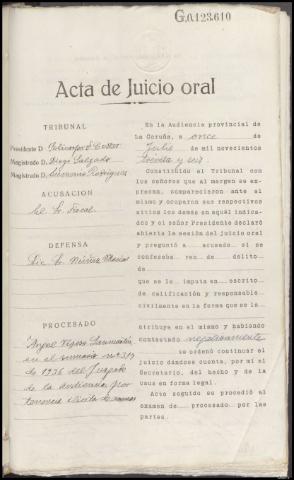 G.0.123.610
Acta de Juicio oral
TRIBUNAL
Presidente D. Policarpo F. Costas
Magistrado D. Diego Salgado
Magistrado D. Rodríguez
ACUSACION
El S. Fiscal
DEFENSA
PROCESADO
Angel
en el sumario nº 319
de 1936 del Juzgado
de la audiencia por
tenencia ilícita de armas
En la Audiencia provincial de
La Coruña, a once de
Julio de mil novecientos
treinta y seis
Constituído el Tribunal con
los señores que al margen se ex-
presan, comparecieron ante el
mismo y ocuparon sus respectivos
sitios los demás en aquél indica-
dos y el señor Presidente declaró
abierta la sesión del juicio oral
y preguntó a acusado si se
confesaba reo de delito
de
que se le imputa en escrito
de calificación y responsable
civilmente en la forma que se le
atribuye en el mismo y habiendo
contestado negativamente
se ordenó continuar el
juicio dándose cuenta, por mí el
Secretario, del hecho y de la
causa en forma legal.
Acto seguido se procedió al
exámen de procesado por las
partes.